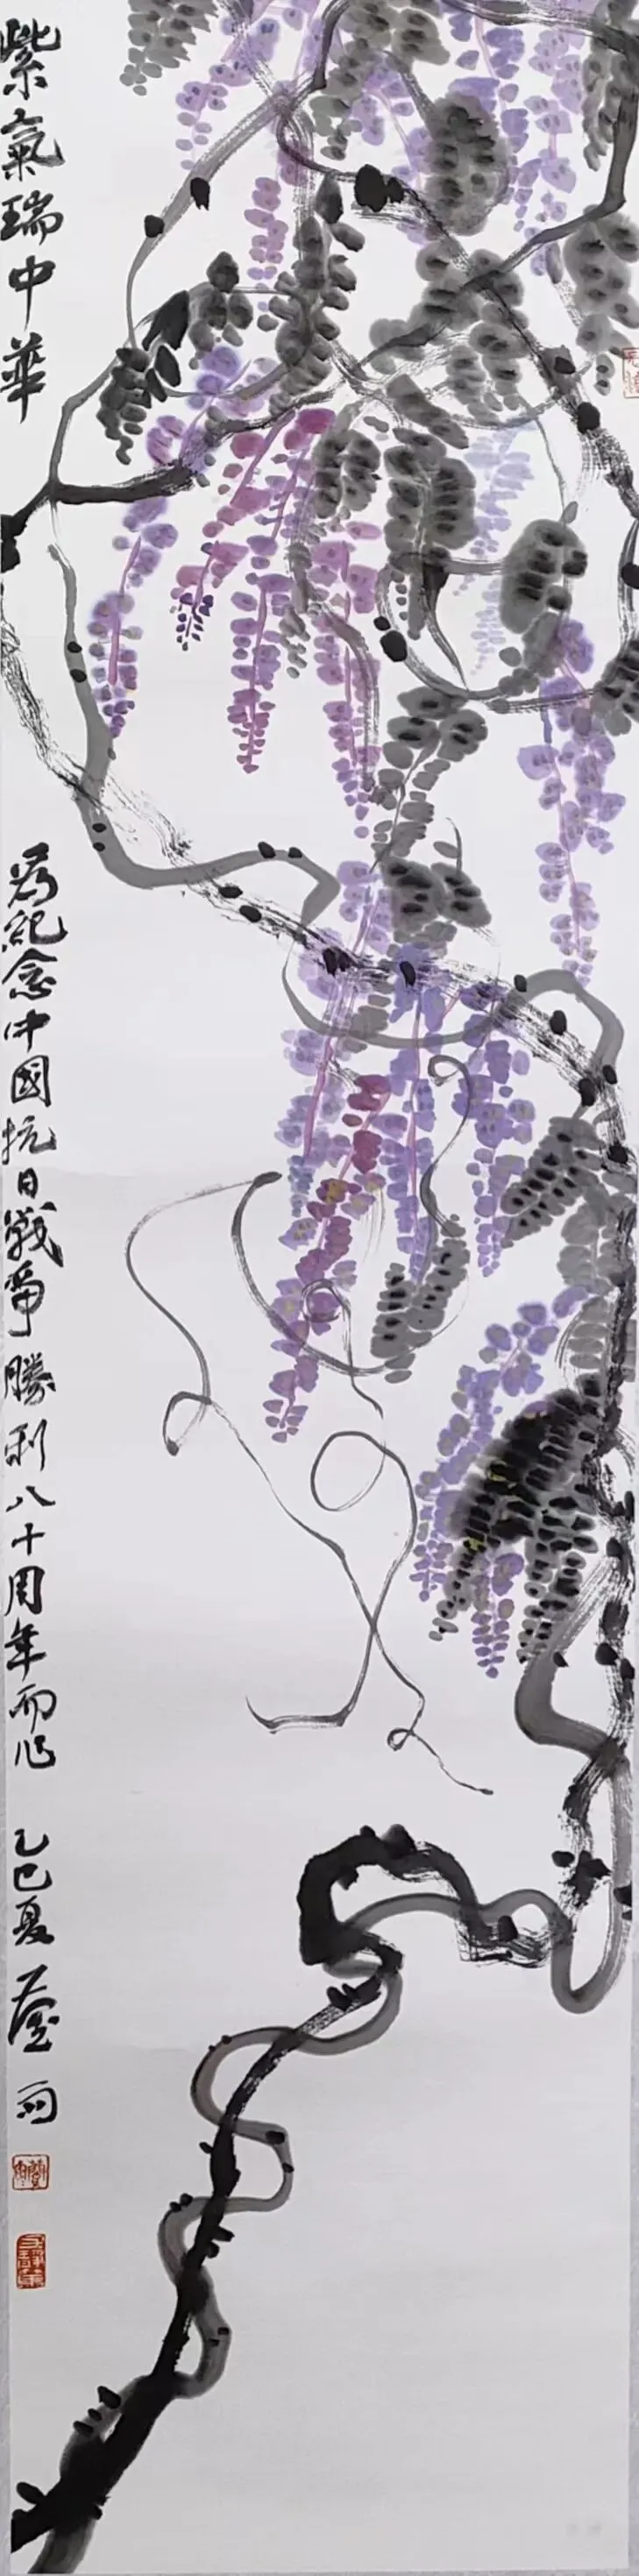 紫氣瑞中華
為紀念中國抗日戰爭勝利八十周年而作
乙巳夏
雨